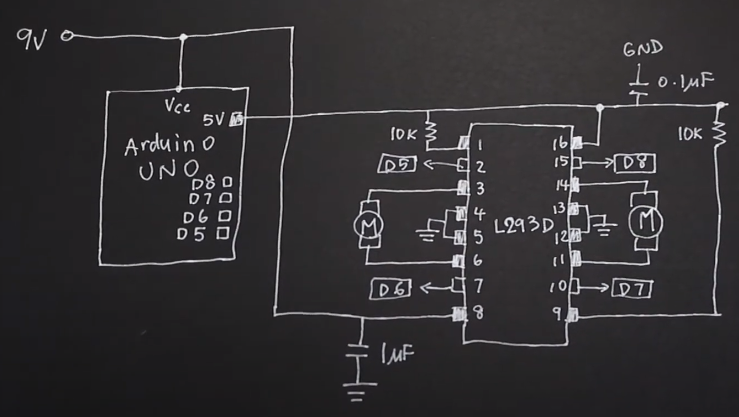 9V
GND
0.1µF
Vcc
5V
Arduino
UNO
D8
D7
D6
D5
10K
10K
1
2
3
4
5
6
7
8
L293D
16
15
14
13
12
11
10
9
D5
D6
D8
D7
M
M
1µF